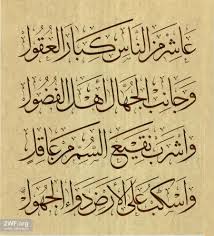 عَاشِر مِنَ النَّاسِ كِبَارَ العُقُولِ
وَجَانِبِ الجُهَّالَ أَهْلَ الفُضُولِ
وَاشْرَبْ نَقِيعَ السُّمِّ مِنْ عَاقِلٍ
وَاسْكُبْ عَلَى الأَرْضِ دَوَاءَ الجَهُولِ
ZWF.org